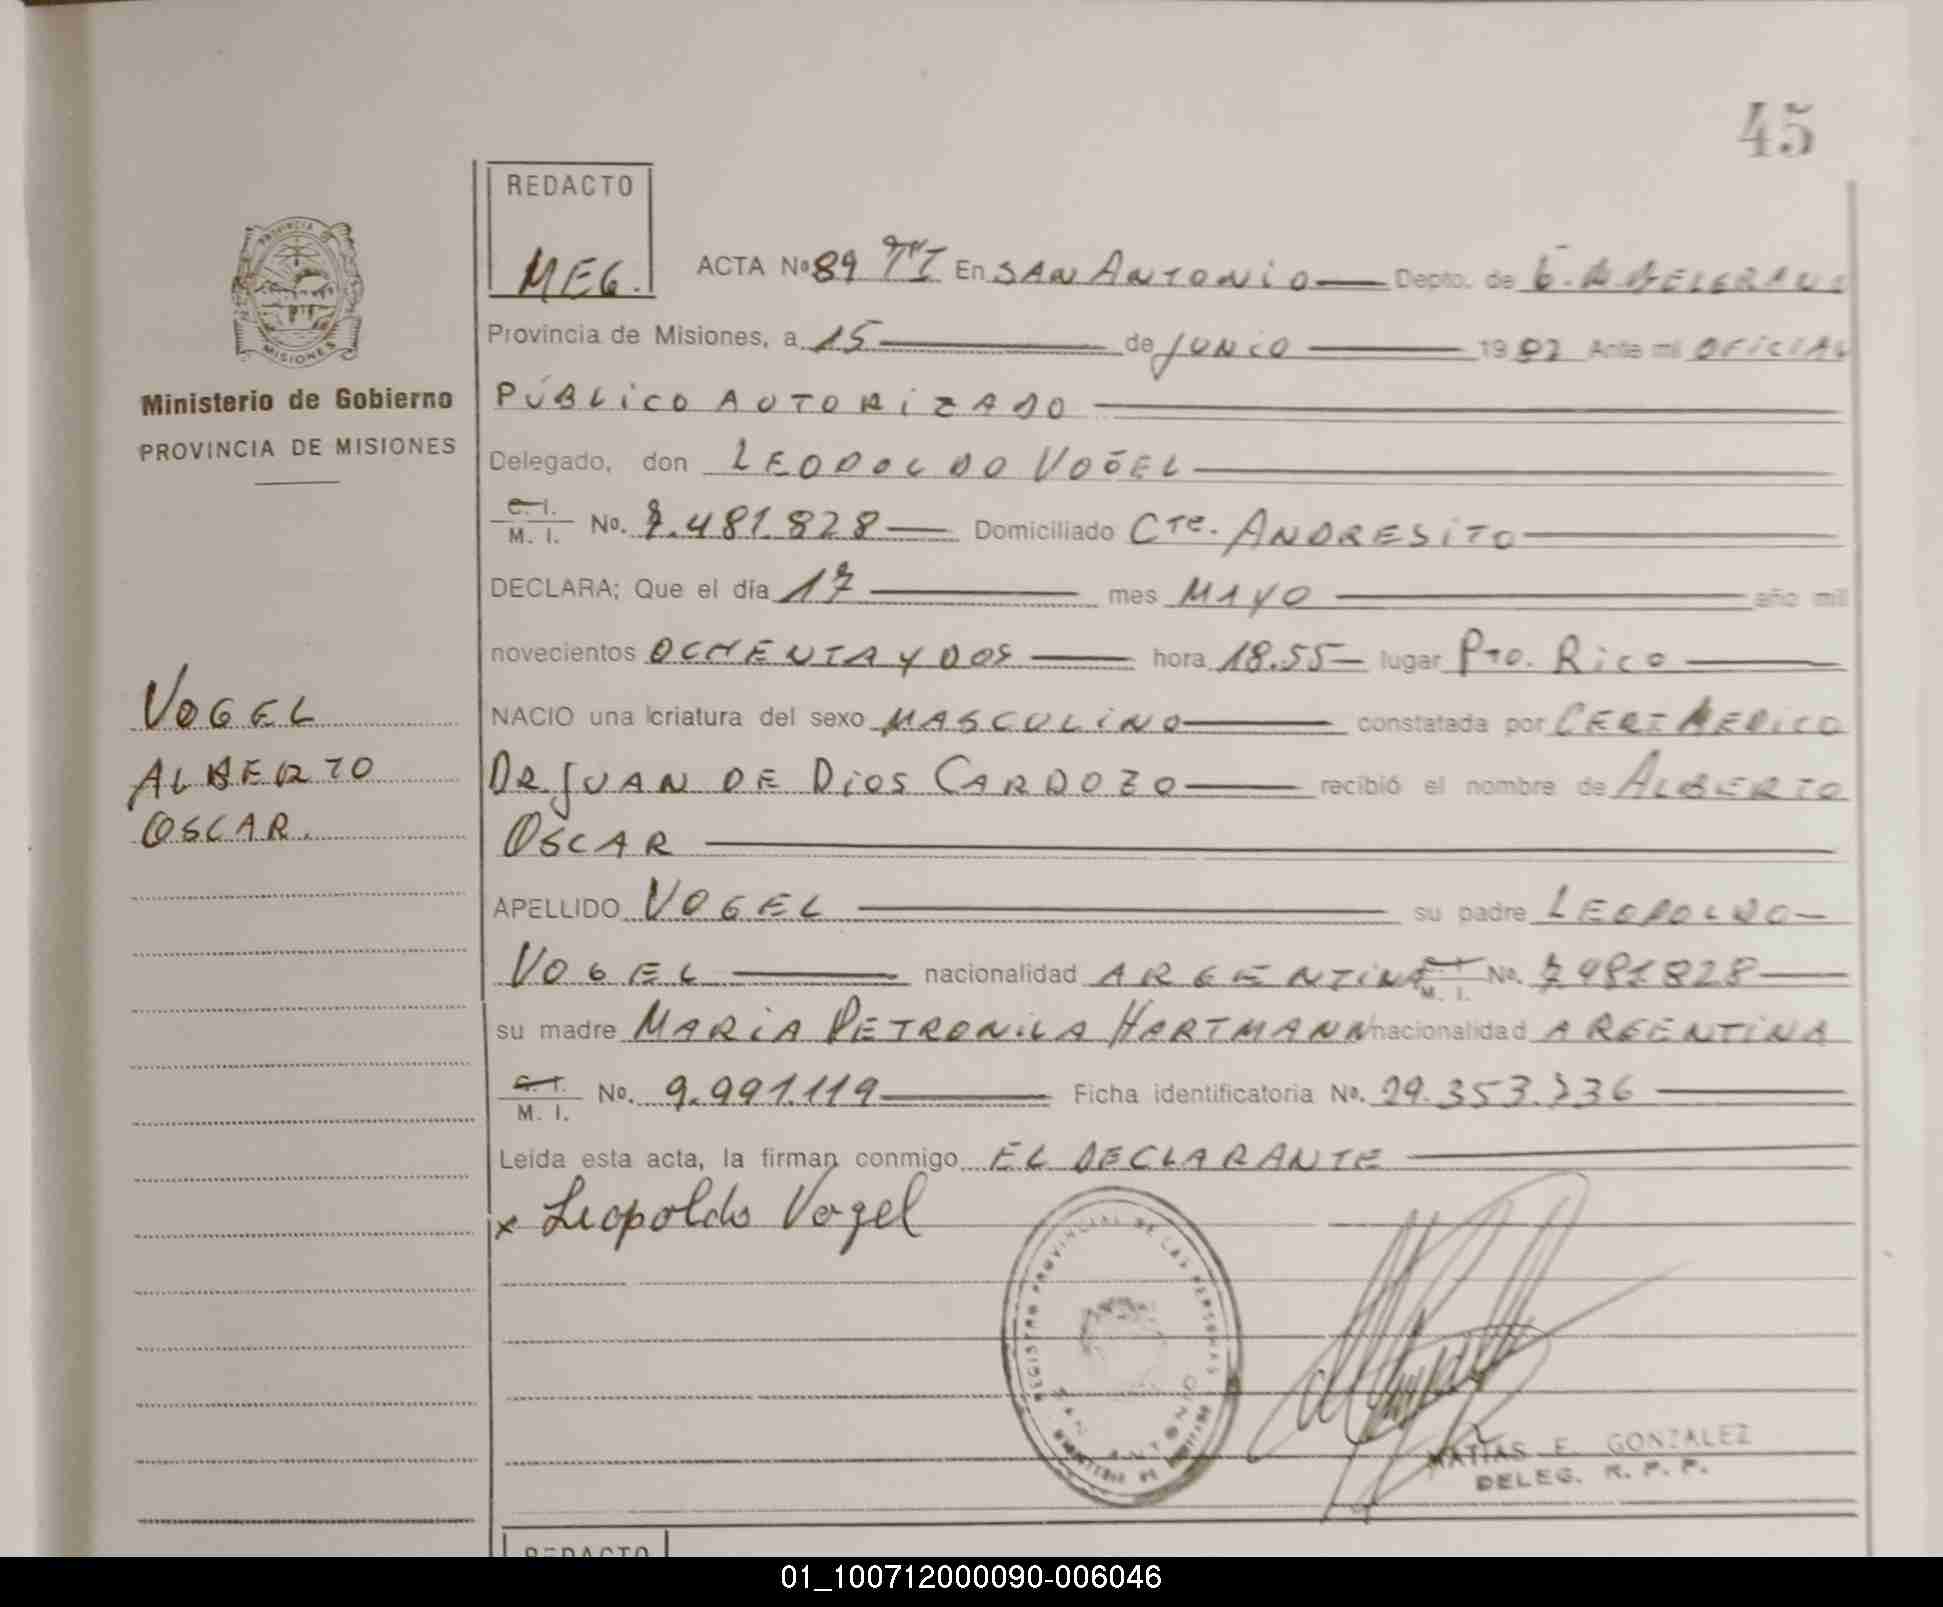 45
REDACTO
MEG.
ACTA No 89 TºI En SAN ANTONIO Depto. de G. M. BELGRANO
Provincia de Misiones, a 15 de JUNIO 1982 Ante mi OFICIAL
PÚBLICO AUTORIZADO
Delegado, don LEOPOLDO VOGEL
C. I. M. I. No. 7.481.828 Domiciliado Cte. ANDRESITO
DECLARA; Que el día 17 mes MAYO año mil
novecientos OCHENTA Y DOS hora 18.55 lugar Pto. RICO
NACIO una criatura del sexo MASCULINO constatada por CERT MEDICO
DR. JUAN DE DIOS CARDOZO recibió el nombre de ALBERTO
OSCAR
APELLIDO VOGEL su padre LEOPOLDO
VOGEL nacionalidad ARGENTINA C. I. M. I. No. 7481828
su madre MARIA PETRONILA HARTMANN nacionalidad ARGENTINA
C. I. M. I. No. 9.991.119 Ficha identificatoria No. 29.353.336
Leída esta acta, la firman conmigo EL DECLARANTE
x Leopoldo Vogel
PROVINCIA DE MISIONES
Ministerio de Gobierno
PROVINCIA DE MISIONES
VOGEL
ALBERTO
OSCAR.
REGISTRO PROVINCIAL DE LAS PERSONAS
SAN ANTONIO
MINISTERIO DE GOBIERNO
MATIAS E. GONZALEZ
DELEG. R. P. P.
REDACTO
01_100712000090-006046